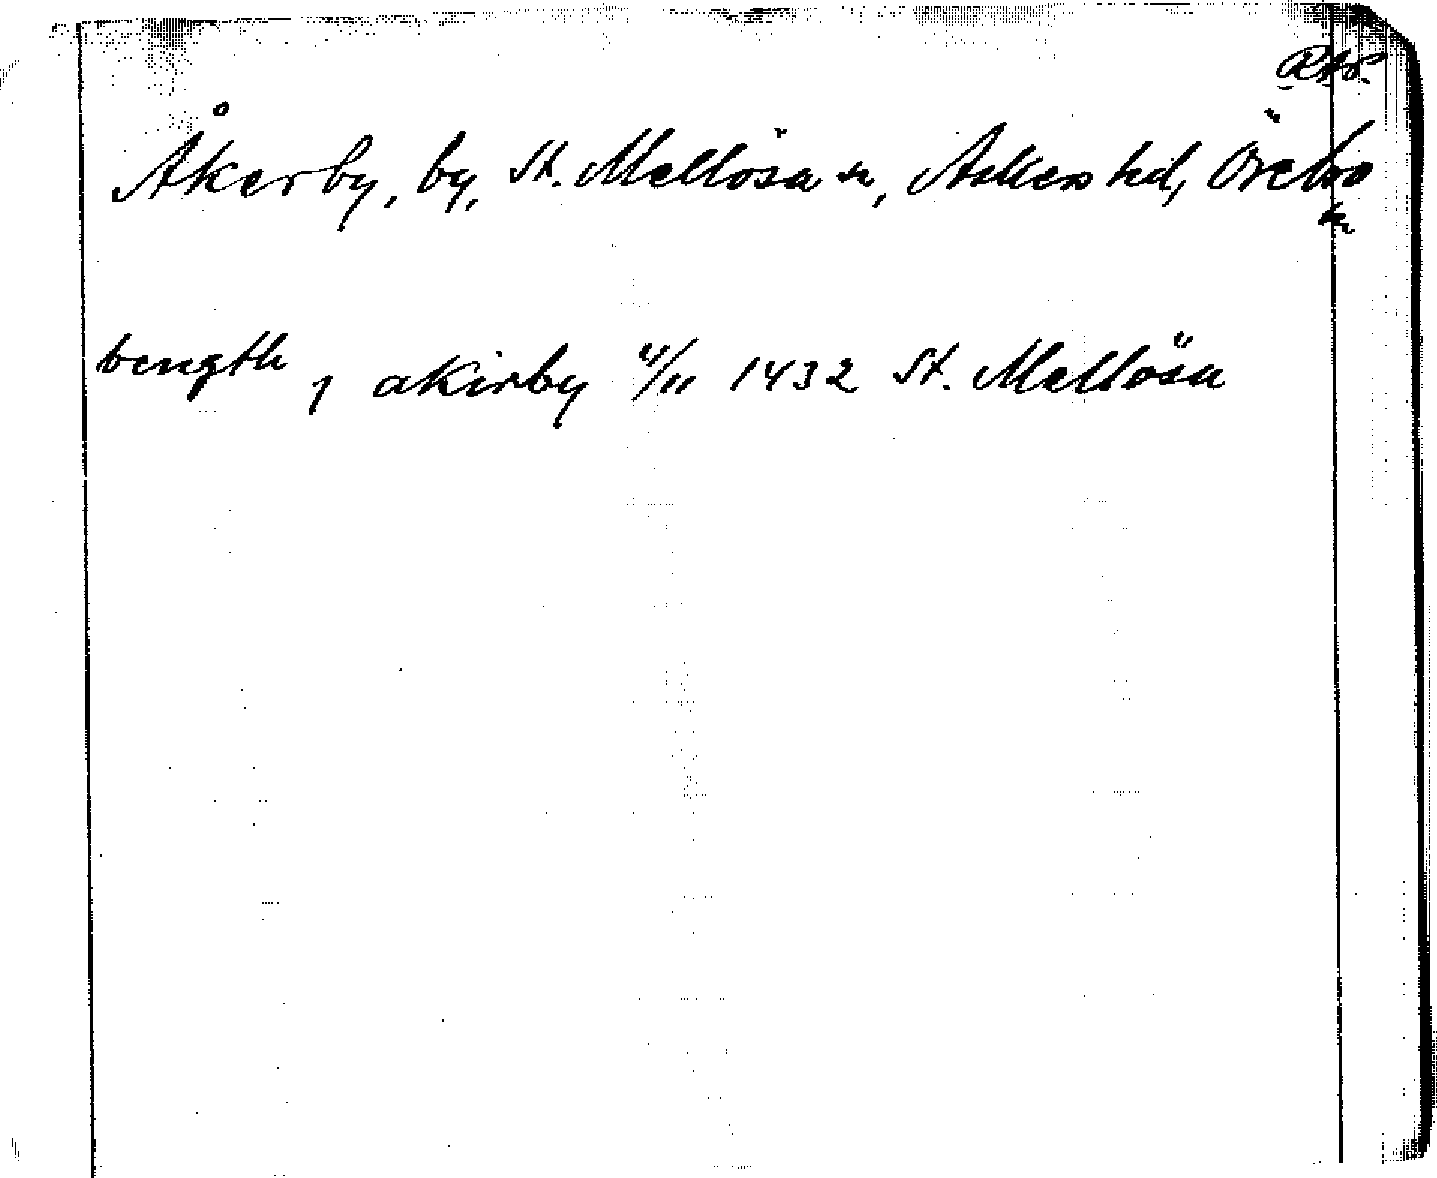 Åkerby, by, St. Mellösa sn, Askers hd, Örebro
ln
bength , akirby 4/11 1432 St. Mellösa